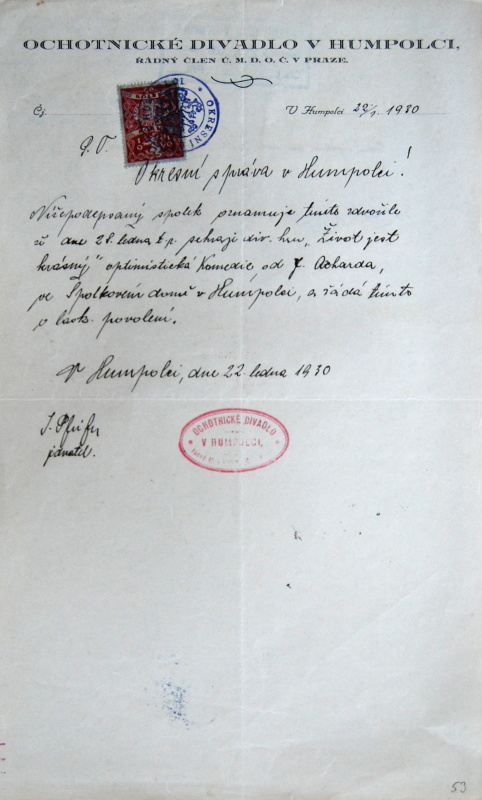 OCHOTNICKÉ DIVADLO V HUMPOLCI,
ŘÁDNÝ ČLEN Ú. M. D. O. Č. V PRAZE.
Čj. V Humpolci 22/1 1930
OKRESNÍ
P. T.
Okresní správa v Humpolci!
Nížepodepsaný spolek oznamuje tímto zdvořile
že dne 28. ledna t. r. sehraji div. hru „Život jest
krásný" optimistická Komedie od J. Acharda,
ve Spolkovém domě v Humpolci, a žádá tímto
o lask. povolení.
V Humpolci, dne 22. ledna 1930
J. Pfeifer
jednatel.
OCHOTNICKÉ DIVADLO
V HUMPOLCI,
53